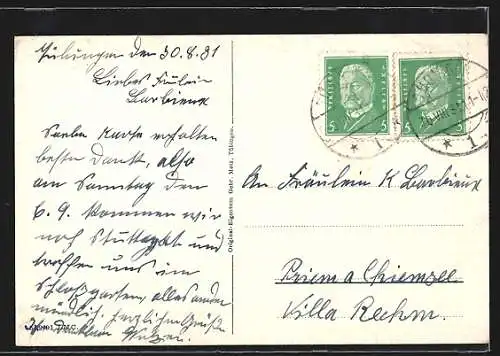 Tübingen den 30.8.31
Liebes Fräulein
Barbieux
Karte erhalten
besten Dank, also
am Sonntag den
6.9. kommen wir
nach Stuttgart und
treffen uns im
Schloßgarten, alles andere
mündlich. herzliche Grüße
Original-Eigentum Gebr. Metz, Tübingen.
DEUTSCHES REICH
5 5
DEUTSCHES REICH
5 5
* 1 *
* 1 *
An Fräulein K Barbieux
Prien a Chiemsee
Villa Rechm.